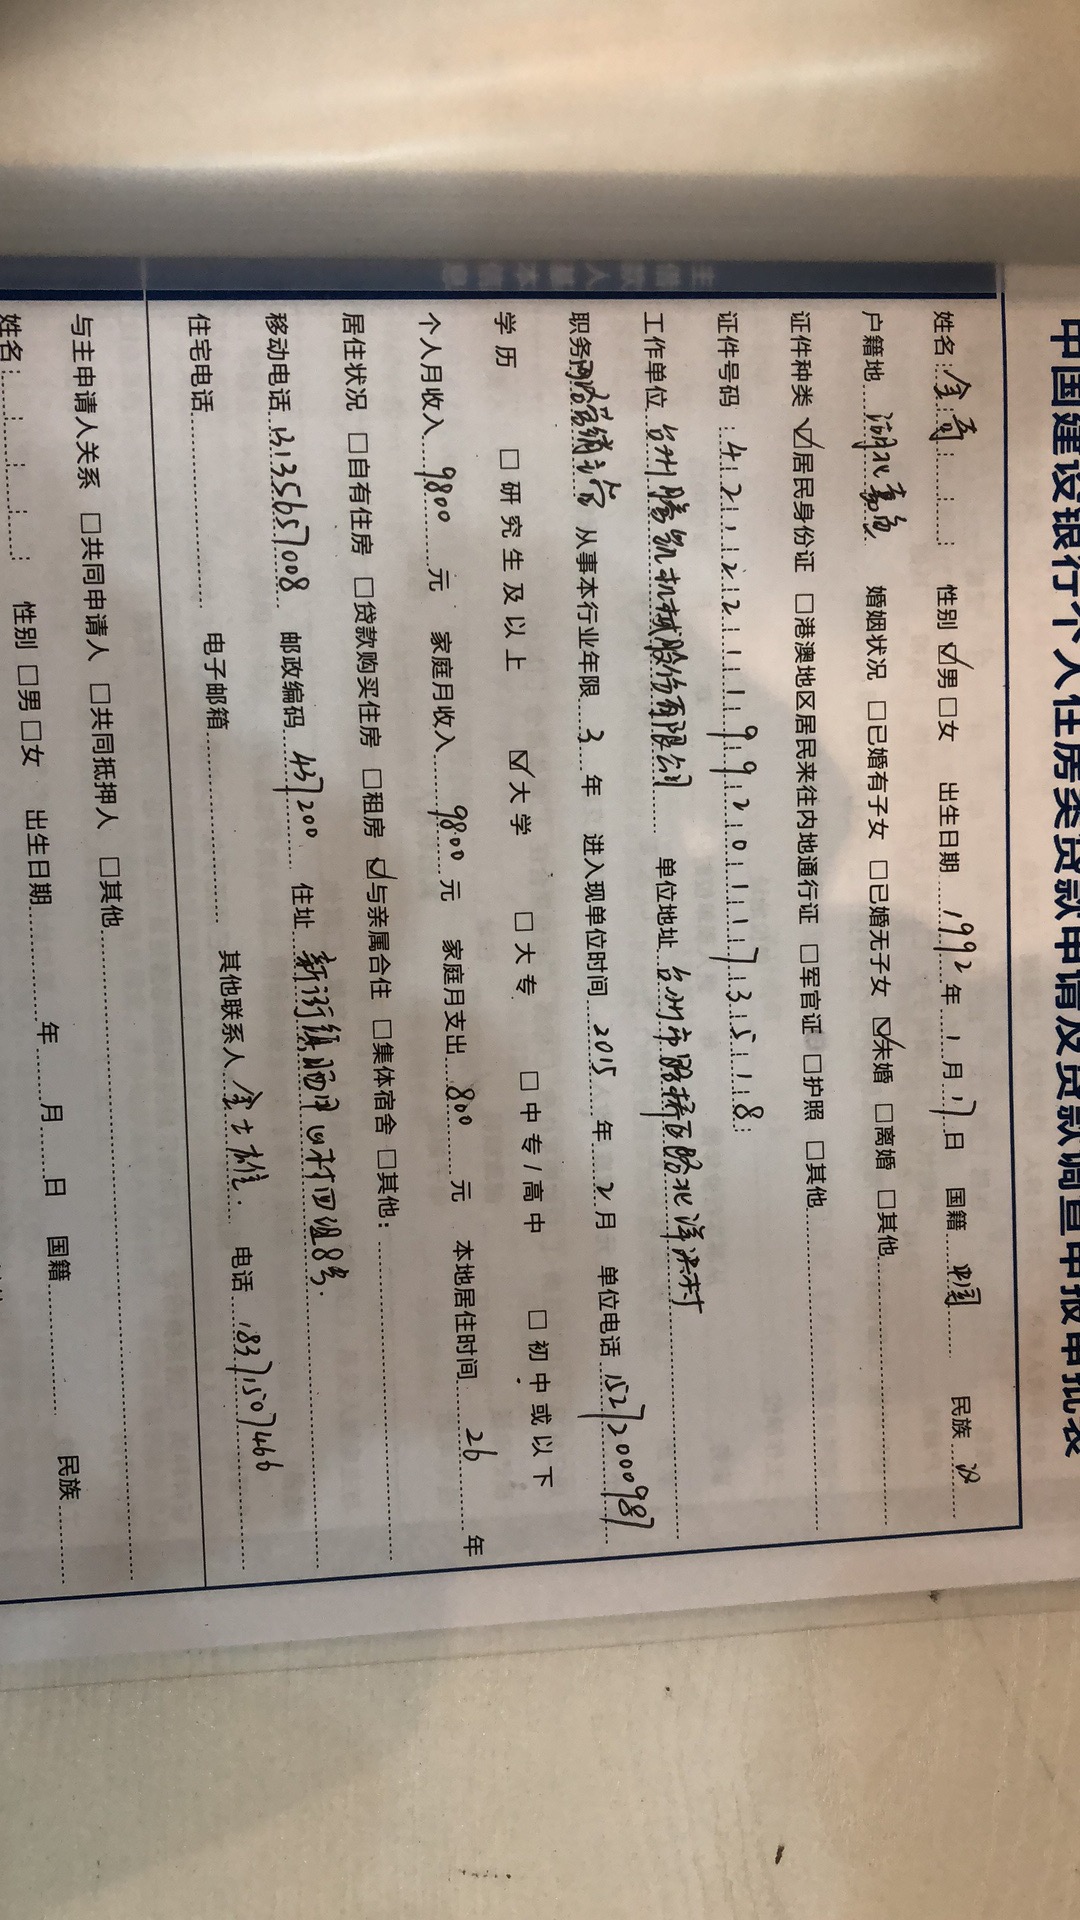 中国建设银行个人住房类贷款申请及贷款调查申报审批表
姓名： 性别 ☑男 □女 出生日期 1992 年 1 月 17 日 国籍 中国 民族 汉
户籍地 湖北嘉鱼 婚姻状况 □已婚有子女 □已婚无子女 ☑未婚 □离婚 □其他
证件种类 ☑居民身份证 □港澳地区居民来往内地通行证 □军官证 □护照 □其他
证件号码：422122199201173518
工作单位 台州腾凯机械股份有限公司 单位地址 台州市路桥区路北洋洪村
职务 网络营销主管 从事本行业年限 3 年 进入现单位时间 2015 年 2 月 单位电话 15272000987
学历 □研究生及以上 ☑大学 □大专 □中专/高中 □初中或以下
个人月收入 9800 元 家庭月收入 9800 元 家庭月支出 800 元 本地居住时间 26 年
居住状况 □自有住房 □贷款购买住房 □租房 ☑与亲属合住 □集体宿舍 □其他：
移动电话 13135657008 邮政编码 437200 住址 新街镇 村四组8号.
住宅电话 电子邮箱 其他联系人 金士雄. 电话 18371507466
与主申请人关系 □共同申请人 □共同抵押人 □其他
姓名： 性别 □男 □女 出生日期 年 月 日 国籍 民族